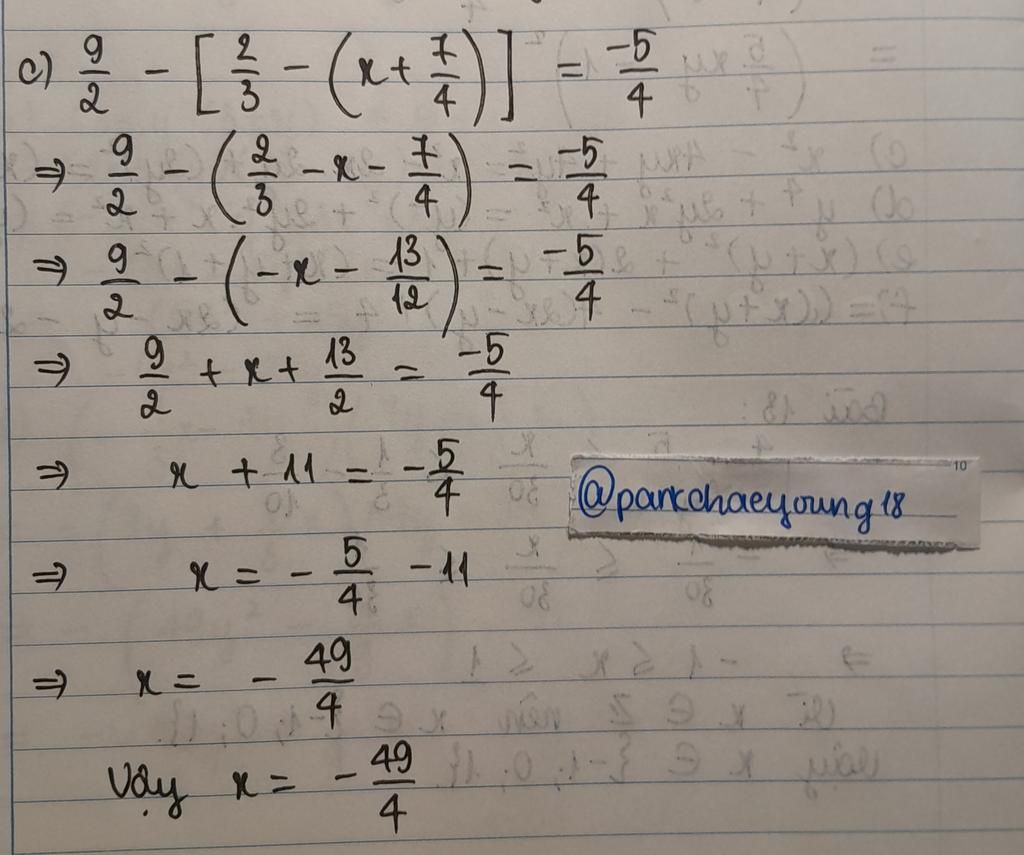 c) 9/2 - [2/3 - (x + 7/4)] = -5/4
⇒ 9/2 - (2/3 - x - 7/4) = -5/4
⇒ 9/2 - (-x - 13/12) = -5/4
⇒ 9/2 + x + 13/2 = -5/4
⇒ x + 11 = -5/4
@parkchaeyoung18
10
⇒ x = -5/4 - 11
⇒ x = -49/4
Vậy x = -49/4